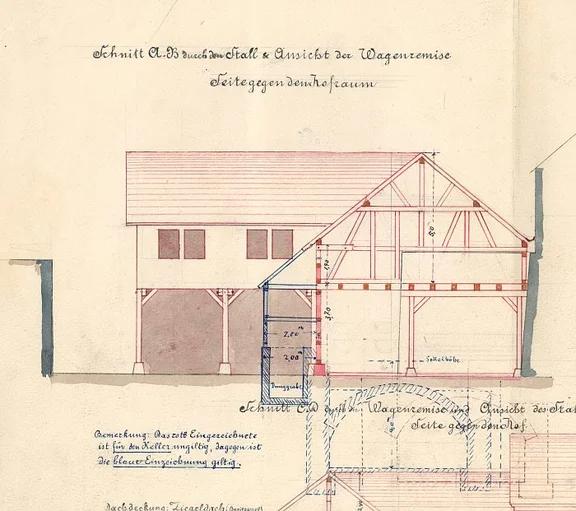 Schnitt A-B durch den Stall & Ansicht der Wagenremise
Seite gegen den Hofraum
1,60
3,70
2,00 m
2,00 m
Dunggrube
Schnitt C-D durch die Wagenremise und Ansicht des Stal
Seite gegen den Hof.
Bemerkung: Das roth Eingezeichnete
ist für den Keller ungiltig, dagegen ist
die blaue Einzeichnung giltig.
Dachdeckung: Ziegeldach